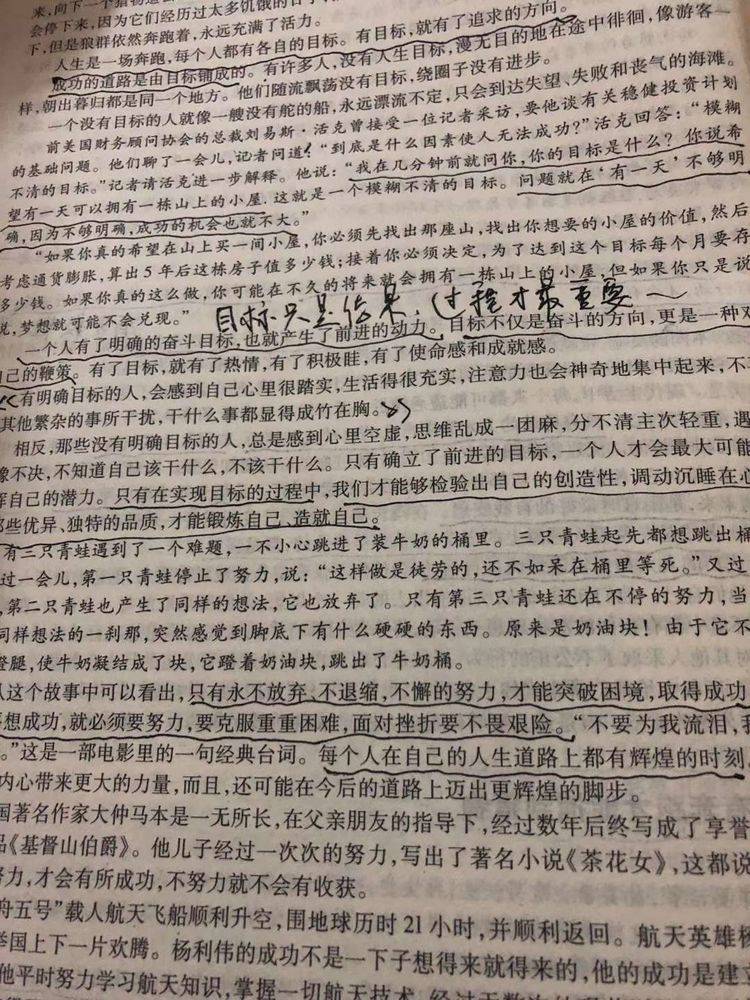 来，向下一个猎物追
会停下来，因为它们经历过太多饥饿的日子
下，但是狼群依然奔跑着，永远充满了活力。
人生是一场奔跑，每个人都有各自的目标。有目标，就有了追求的方向。
成功的道路是由目标铺成的。有许多人，没有人生目标，漫无目的地在途中徘徊，像游客一
样，朝出暮归都是同一个地方。他们随流飘荡没有目标，绕圈子没有进步。
一个没有目标的人就像一艘没有舵的船，永远漂流不定，只会到达失望、失败和丧气的海滩。
前美国财务顾问协会的总裁刘易斯·活克曾接受一位记者采访，要他谈有关稳健投资计划
的基础问题。他们聊了一会儿，记者问道：“到底是什么因素使人无法成功？”活克回答：“模糊
不清的目标。”记者请活克进一步解释。他说：“我在几分钟前就问你，你的目标是什么？你说希
望有一天可以拥有一栋山上的小屋，这就是一个模糊不清的目标。问题就在‘有一天’不够明
确，因为不够明确，成功的机会也就不大。”
“如果你真的希望在山上买一间小屋，你必须先找出那座山，找出你想要的小屋的价值，然后
考虑通货膨胀，算出5年后这栋房子值多少钱；接着你必须决定，为了达到这个目标每个月要存
多少钱。如果你真的这么做，你可能在不久的将来就会拥有一栋山上的小屋，但如果你只是说
说，梦想就可能不会兑现。”
目标只是结果，过程才最重要～
一个人有了明确的奋斗目标，也就产生了前进的动力。目标不仅是奋斗的方向，更是一种对
自己的鞭策。有了目标，就有了热情，有了积极眭，有了使命感和成就感。
有明确目标的人，会感到自己心里很踏实，生活得很充实，注意力也会神奇地集中起来，不
其他繁杂的事所干扰，干什么事都显得成竹在胸。
相反，那些没有明确目标的人，总是感到心里空虚，思维乱成一团麻，分不清主次轻重，遇
像不决，不知道自己该干什么，不该干什么。只有确立了前进的目标，一个人才会最大可能
挥自己的潜力。只有在实现目标的过程中，我们才能够检验出自己的创造性，调动沉睡在心
那些优异、独特的品质，才能锻炼自己、造就自己。
有三只青蛙遇到了一个难题，一不小心跳进了装牛奶的桶里。三只青蛙起先都想跳出桶
过一会儿，第一只青蛙停止了努力，说：“这样做是徒劳的，还不如呆在桶里等死。”又过
，第二只青蛙也产生了同样的想法，它也放弃了。只有第三只青蛙还在不停的努力，当
同样想法的一刹那，突然感觉到脚底下有什么硬硬的东西。原来是奶油块！由于它不
蹬腿，使牛奶凝结成了块，它蹬着奶油块，跳出了牛奶桶。
从这个故事中可以看出，只有永不放弃、不退缩，不懈的努力，才能突破困境，取得成功
想成功，就必须要努力，要克服重重困难，面对挫折要不畏艰险。“不要为我流泪，我
。”这是一部电影里的一句经典台词。每个人在自己的人生道路上都有辉煌的时刻
内心带来更大的力量，而且，还可能在今后的道路上迈出更辉煌的脚步。
国著名作家大仲马本是一无所长，在父亲朋友的指导下，经过数年后终写成了享誉
品《基督山伯爵》。他儿子经过一次次的努力，写出了著名小说《茶花女》，这都说
努力，才会有所成功，不努力就不会有收获。
舟五号”载人航天飞船顺利升空，围地球历时21小时，并顺利返回。航天英雄杨
举国上下一片欢腾。杨利伟的成功不是一下子想得来就得来的，他的成功是建立
他平时努力学习航天知识，掌握一切航天技术